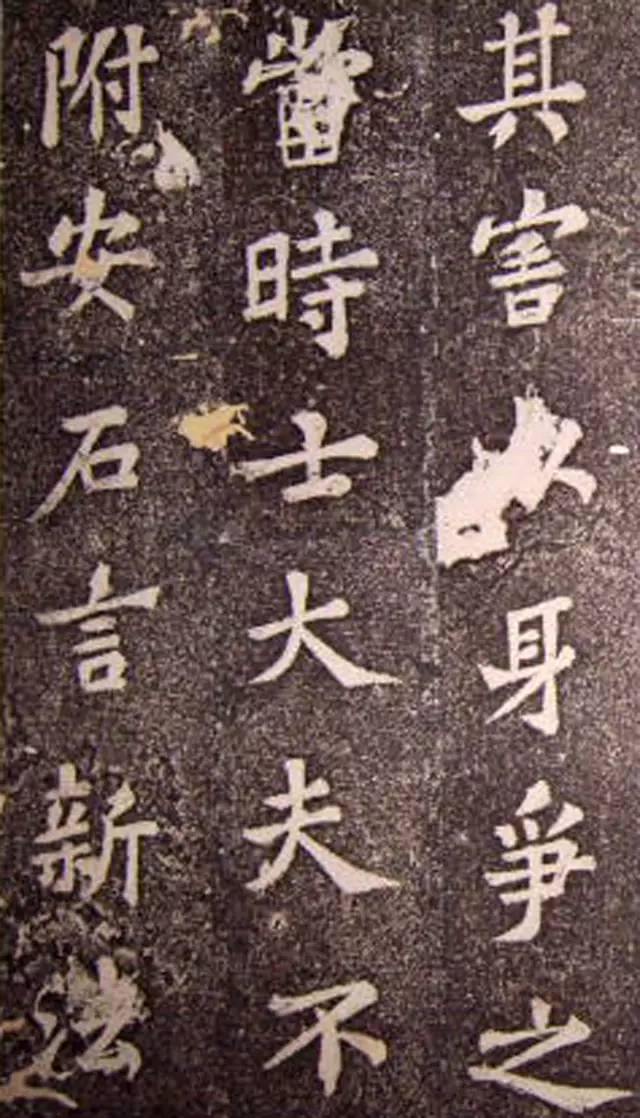 其害以身爭之
當時士大夫不
附安石言新法